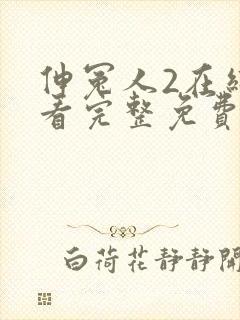 伸冤人2在线
看完整免费
白荷花静静开